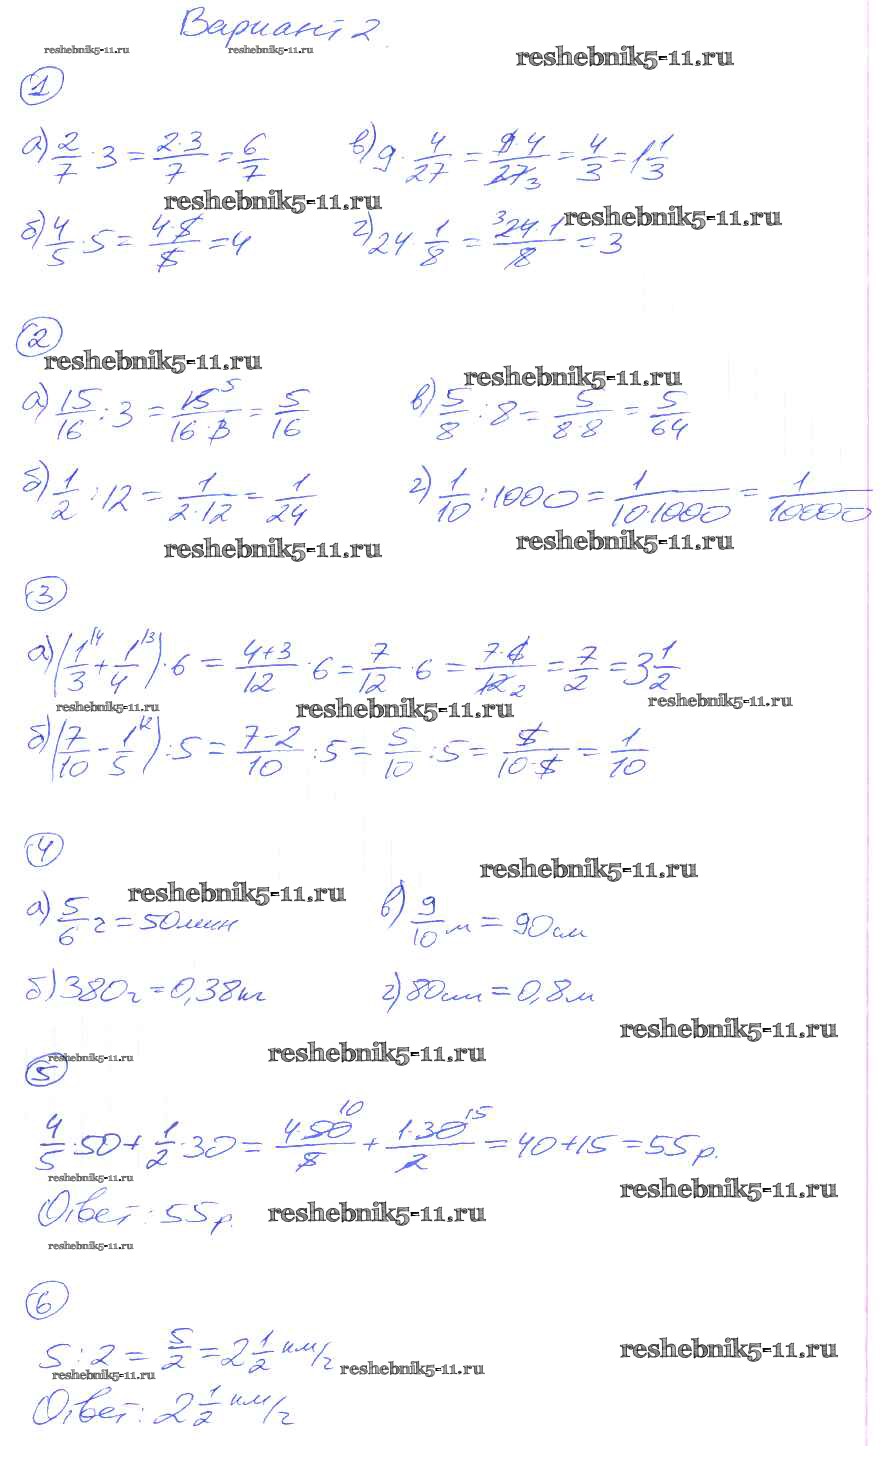 Вариант 2
reshebnik5-11.ru reshebnik5-11.ru reshebnik5-11.ru
1
а) 2/7 · 3 = 2·3/7 = 6/7 в) 9 · 4/27 = 9 4/27 3 = 4/3 = 1 1/3
reshebnik5-11.ru reshebnik5-11.ru
б) 4/5 · 5 = 4·5/5 = 4 г) 24 · 1/8 = 3 24·1/8 = 3
2
reshebnik5-11.ru reshebnik5-11.ru
а) 15/16 : 3 = 15 5/16·3 = 5/16 в) 5/8 : 8 = 5/8·8 = 5/64
б) 1/2 : 12 = 1/2·12 = 1/24 г) 1/10 : 1000 = 1/10·1000 = 1/10000
reshebnik5-11.ru reshebnik5-11.ru
3
а) (1/3 \4 + 1/4 \3) · 6 = 4+3/12 · 6 = 7/12 · 6 = 7·6/12 2 = 7/2 = 3 1/2
reshebnik5-11.ru reshebnik5-11.ru reshebnik5-11.ru
б) (7/10 - 1/5 \2) : 5 = 7-2/10 : 5 = 5/10 : 5 = 5/10·5 = 1/10
4
reshebnik5-11.ru reshebnik5-11.ru
а) 5/6 ч = 50 мин в) 9/10 м = 90 см
б) 380 г = 0,38 кг г) 80 см = 0,8 м
reshebnik5-11.ru reshebnik5-11.ru reshebnik5-11.ru
5
4/5 · 50 + 1/2 · 30 = 4·50 10/5 + 1·30 15/2 = 40 + 15 = 55 р.
reshebnik5-11.ru reshebnik5-11.ru
Ответ: 55 р. reshebnik5-11.ru
reshebnik5-11.ru
6
5 : 2 = 5/2 = 2 1/2 км/ч
reshebnik5-11.ru reshebnik5-11.ru reshebnik5-11.ru
Ответ: 2 1/2 км/ч